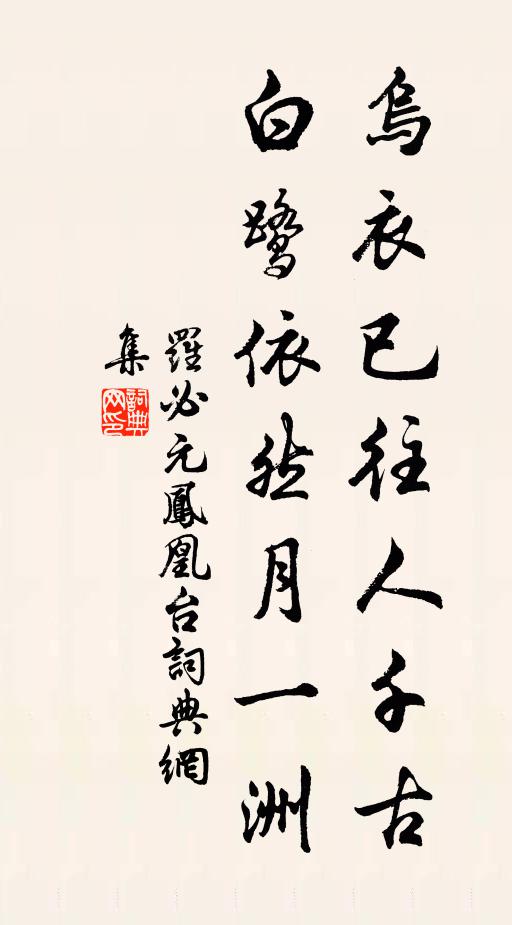 烏衣已往人千古
白鷺依然月一洲
羅必元鳳凰台詞典網
集
詞典
网印